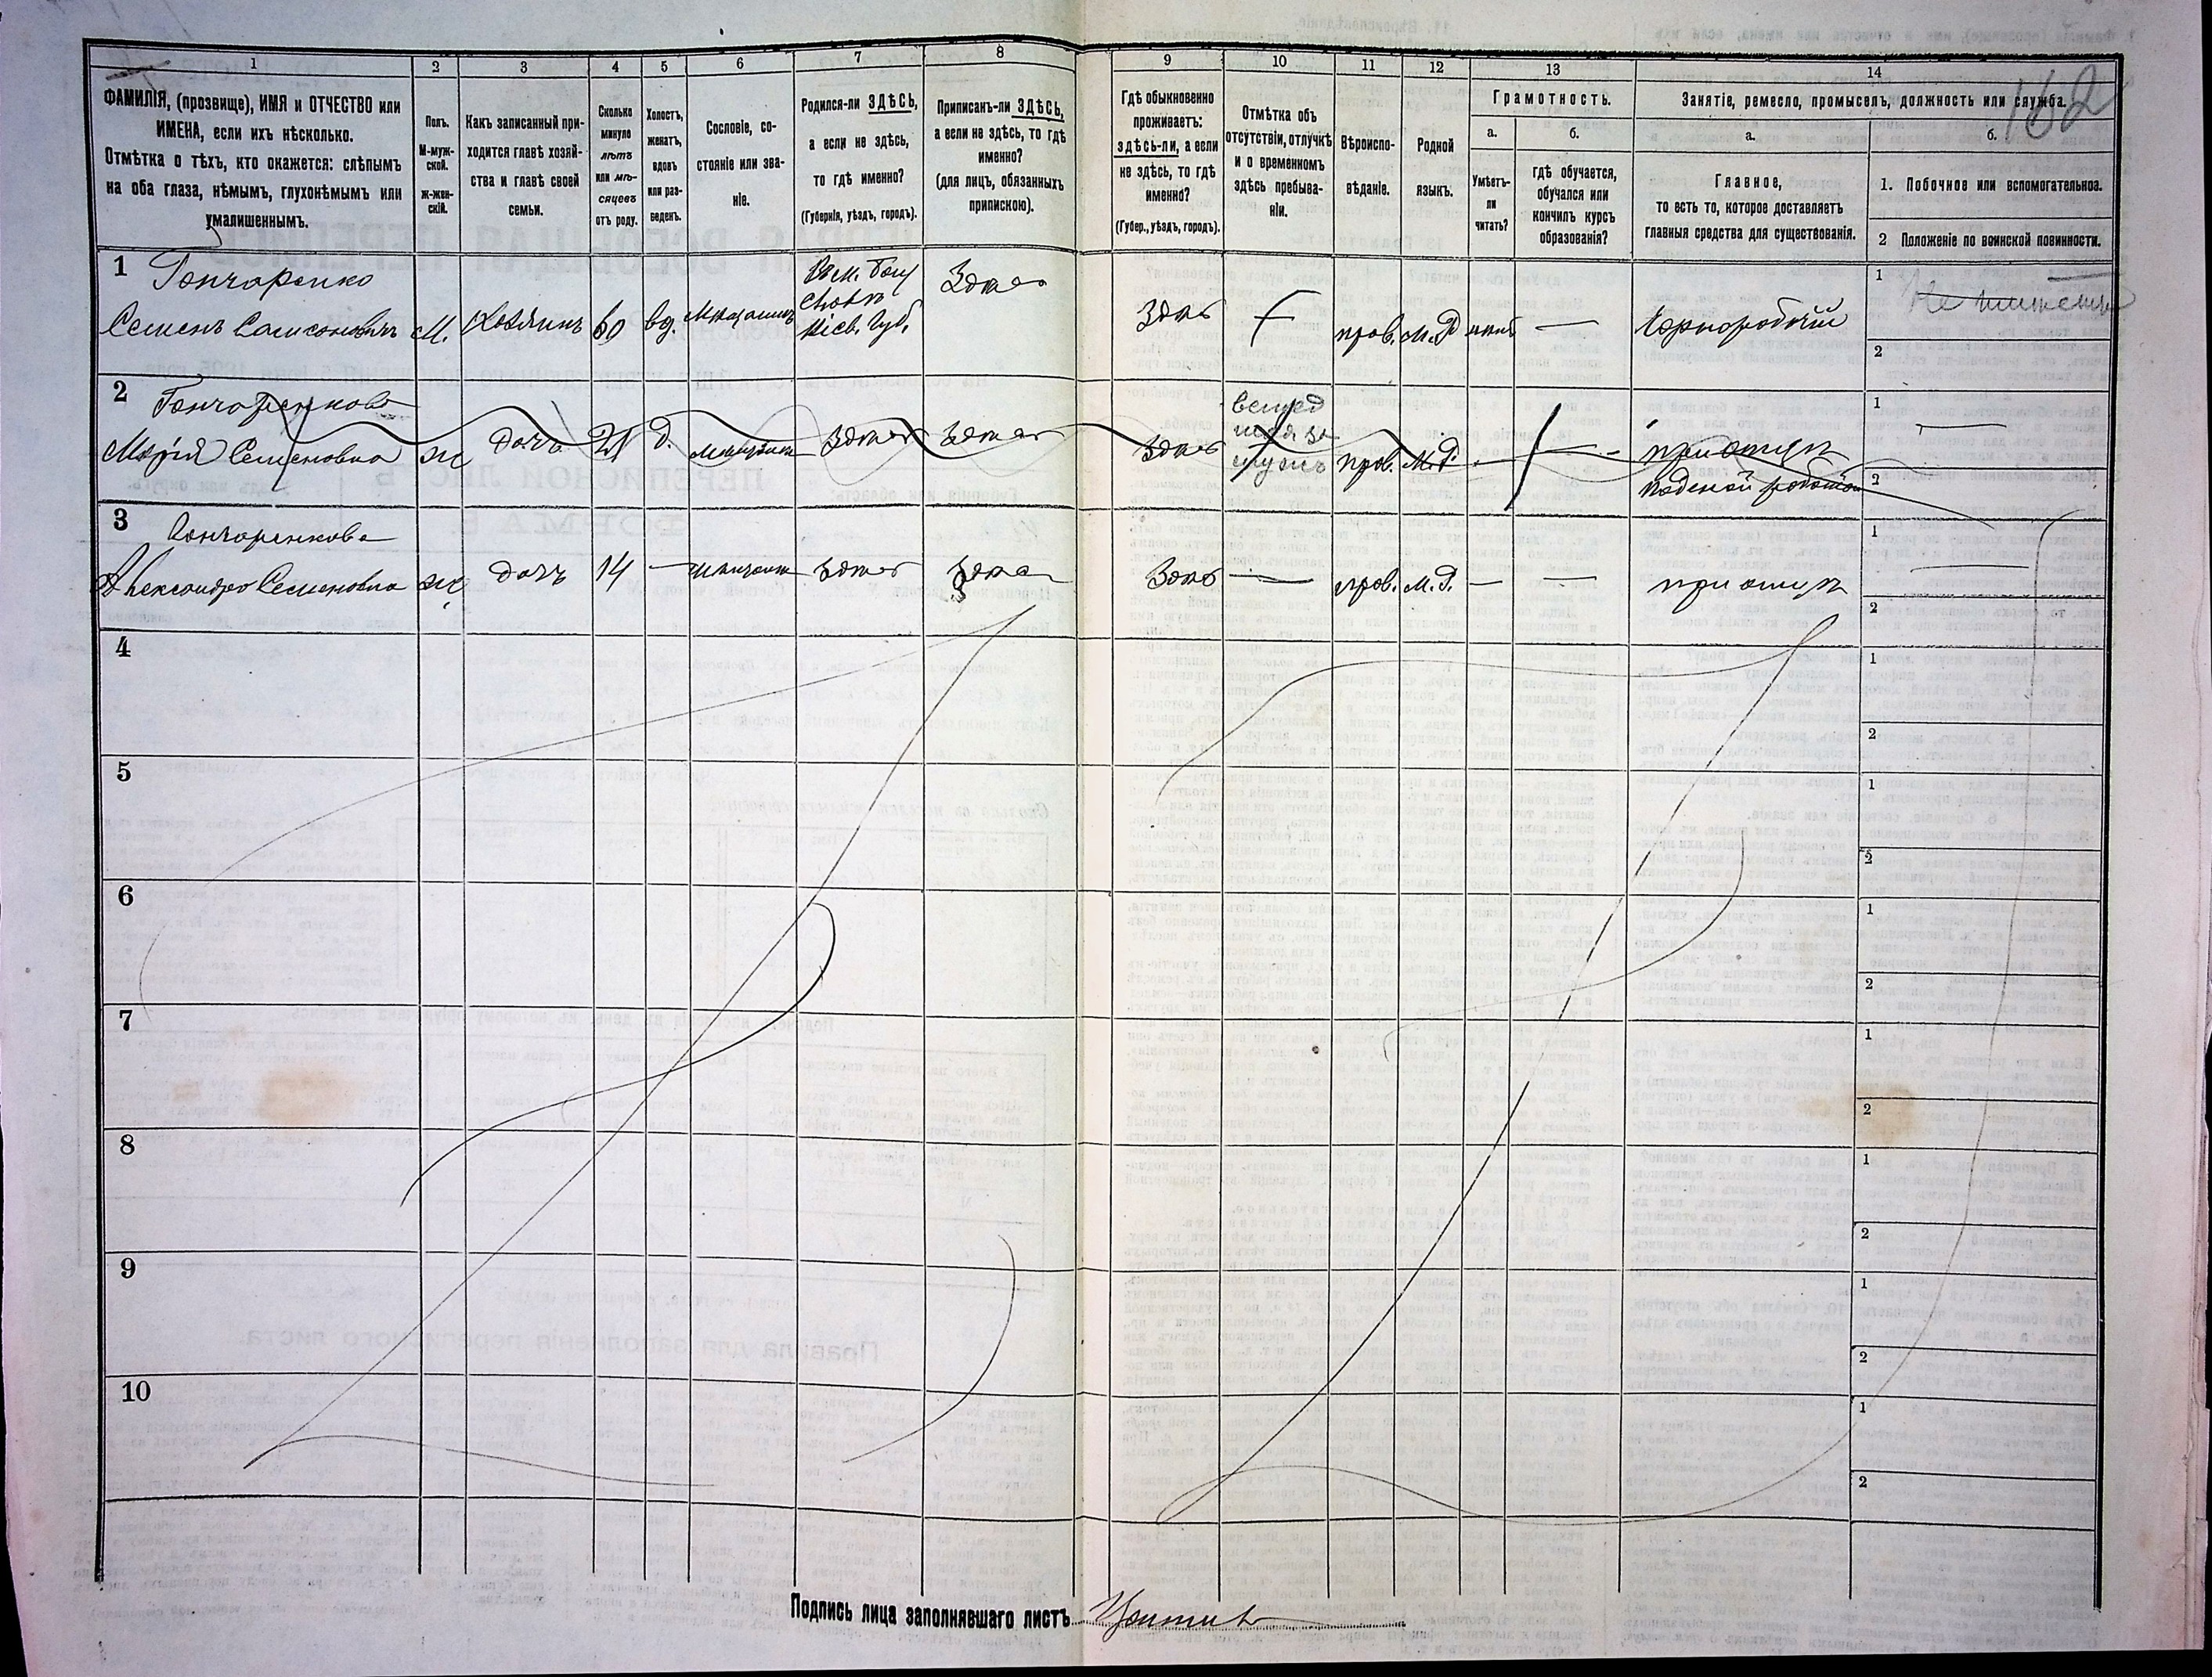 1 2 3 4 5 6 7 8 9 10 11 12 13 14
162
ФАМИЛІЯ, (прозвище), ИМЯ и ОТЧЕСТВО или
ИМЕНА, если ихъ нѣсколько.
Отмѣтка о тѣхъ, кто окажется: слѣпымъ
на оба глаза, нѣмымъ, глухонѣмымъ или
умалишеннымъ.
Полъ.
М-муж-
ской.
Ж-жен-
скій.
Какъ записанный при-
ходится главѣ хозяй-
ства и главѣ своей
семьи.
Сколько
минуло
лѣтъ
или мѣ-
сяцевъ
отъ роду.
Холостъ,
женатъ,
вдовъ
или раз-
веденъ.
Сословіе, со-
стояніе или зва-
ніе.
Родился-ли ЗДѢСЬ,
а если не здѣсь,
то гдѣ именно?
(Губернія, уѣздъ, городъ).
Приписанъ-ли ЗДѢСЬ,
а если не здѣсь, то гдѣ
именно?
(для лицъ, обязанныхъ
припискою).
Гдѣ обыкновенно
проживаетъ:
здѣсь-ли, а если
не здѣсь, то гдѣ
именно?
(Губер., уѣздъ, городъ).
Отмѣтка объ
отсутствіи, отлучкѣ
и о временномъ
здѣсь пребыва-
ніи.
Вѣроиспо-
вѣданіе.
Родной
языкъ.
Грамотность.
а.
Умѣетъ-
ли
читать?
б.
гдѣ обучается,
обучался или
кончилъ курсъ
образованія?
Занятіе, ремесло, промыселъ, должность или служба.
а.
Главное,
то есть то, которое доставляетъ
главныя средства для существованія.
б.
1. Побочное или вспомогательное.
2 Положеніе по воинской повинности.
1 Гончаренко
Семенъ Самсоновичъ М. Хозяинъ 60 вд. Мѣщанинъ
Кіев. Губ.
Здѣсь Здѣсь прав. М.Р. — Чернорабочій
1
2
2 Гончаренкова
Марія Семеновна ж дочь 21 д. мѣщанка здѣсь здѣсь здѣсь
вышед
шая за
мужъ
прав. М.Р. — при отцѣ
поденой работой
1 —
2
3 Гончаренкова
Александра Семеновна ж дочь 14 — мѣщанка здѣсь здѣсь здѣсь — прав. М.Р. — — при отцѣ
1 —
2
4 1
2
5 1
2
6 1
2
7 1
2
8 1
2
9 1
2
10 1
2
Подпись лица заполнявшаго листъ